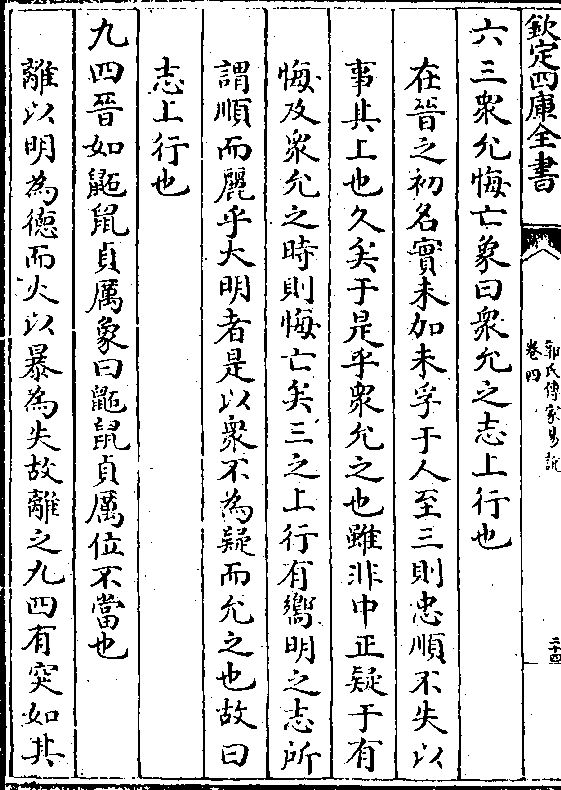 欽定四庫全書
郭氏傳家易說
卷四
二十四
六三衆允悔亡象曰衆允之志上行也
在晉之初名實未加未孚于人至三則忠順不失以
事其上也久矣于是乎衆允之也雖非中正疑于有
悔及衆允之時則悔亡矣三之上行有嚮明之志所
謂順而麗乎大明者是以衆不為疑而允之也故曰
志上行也
九四晉如鼫鼠貞厲象曰鼫鼠貞厲位不當也
離以明為德而火以暴為失故離之九四有突如其